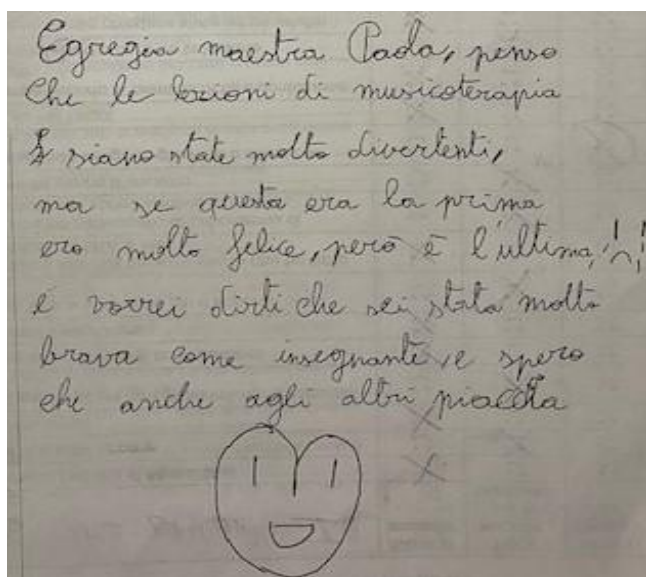 Egregia maestra Paola, penso
Che le lezioni di musicoterapia
siano state molto divertenti,
ma se questa era la prima
ero molto felice, però è l'ultima,
e vorrei dirti che sei stata molto
brava come insegnante, e spero
che anche agli altri piaccia